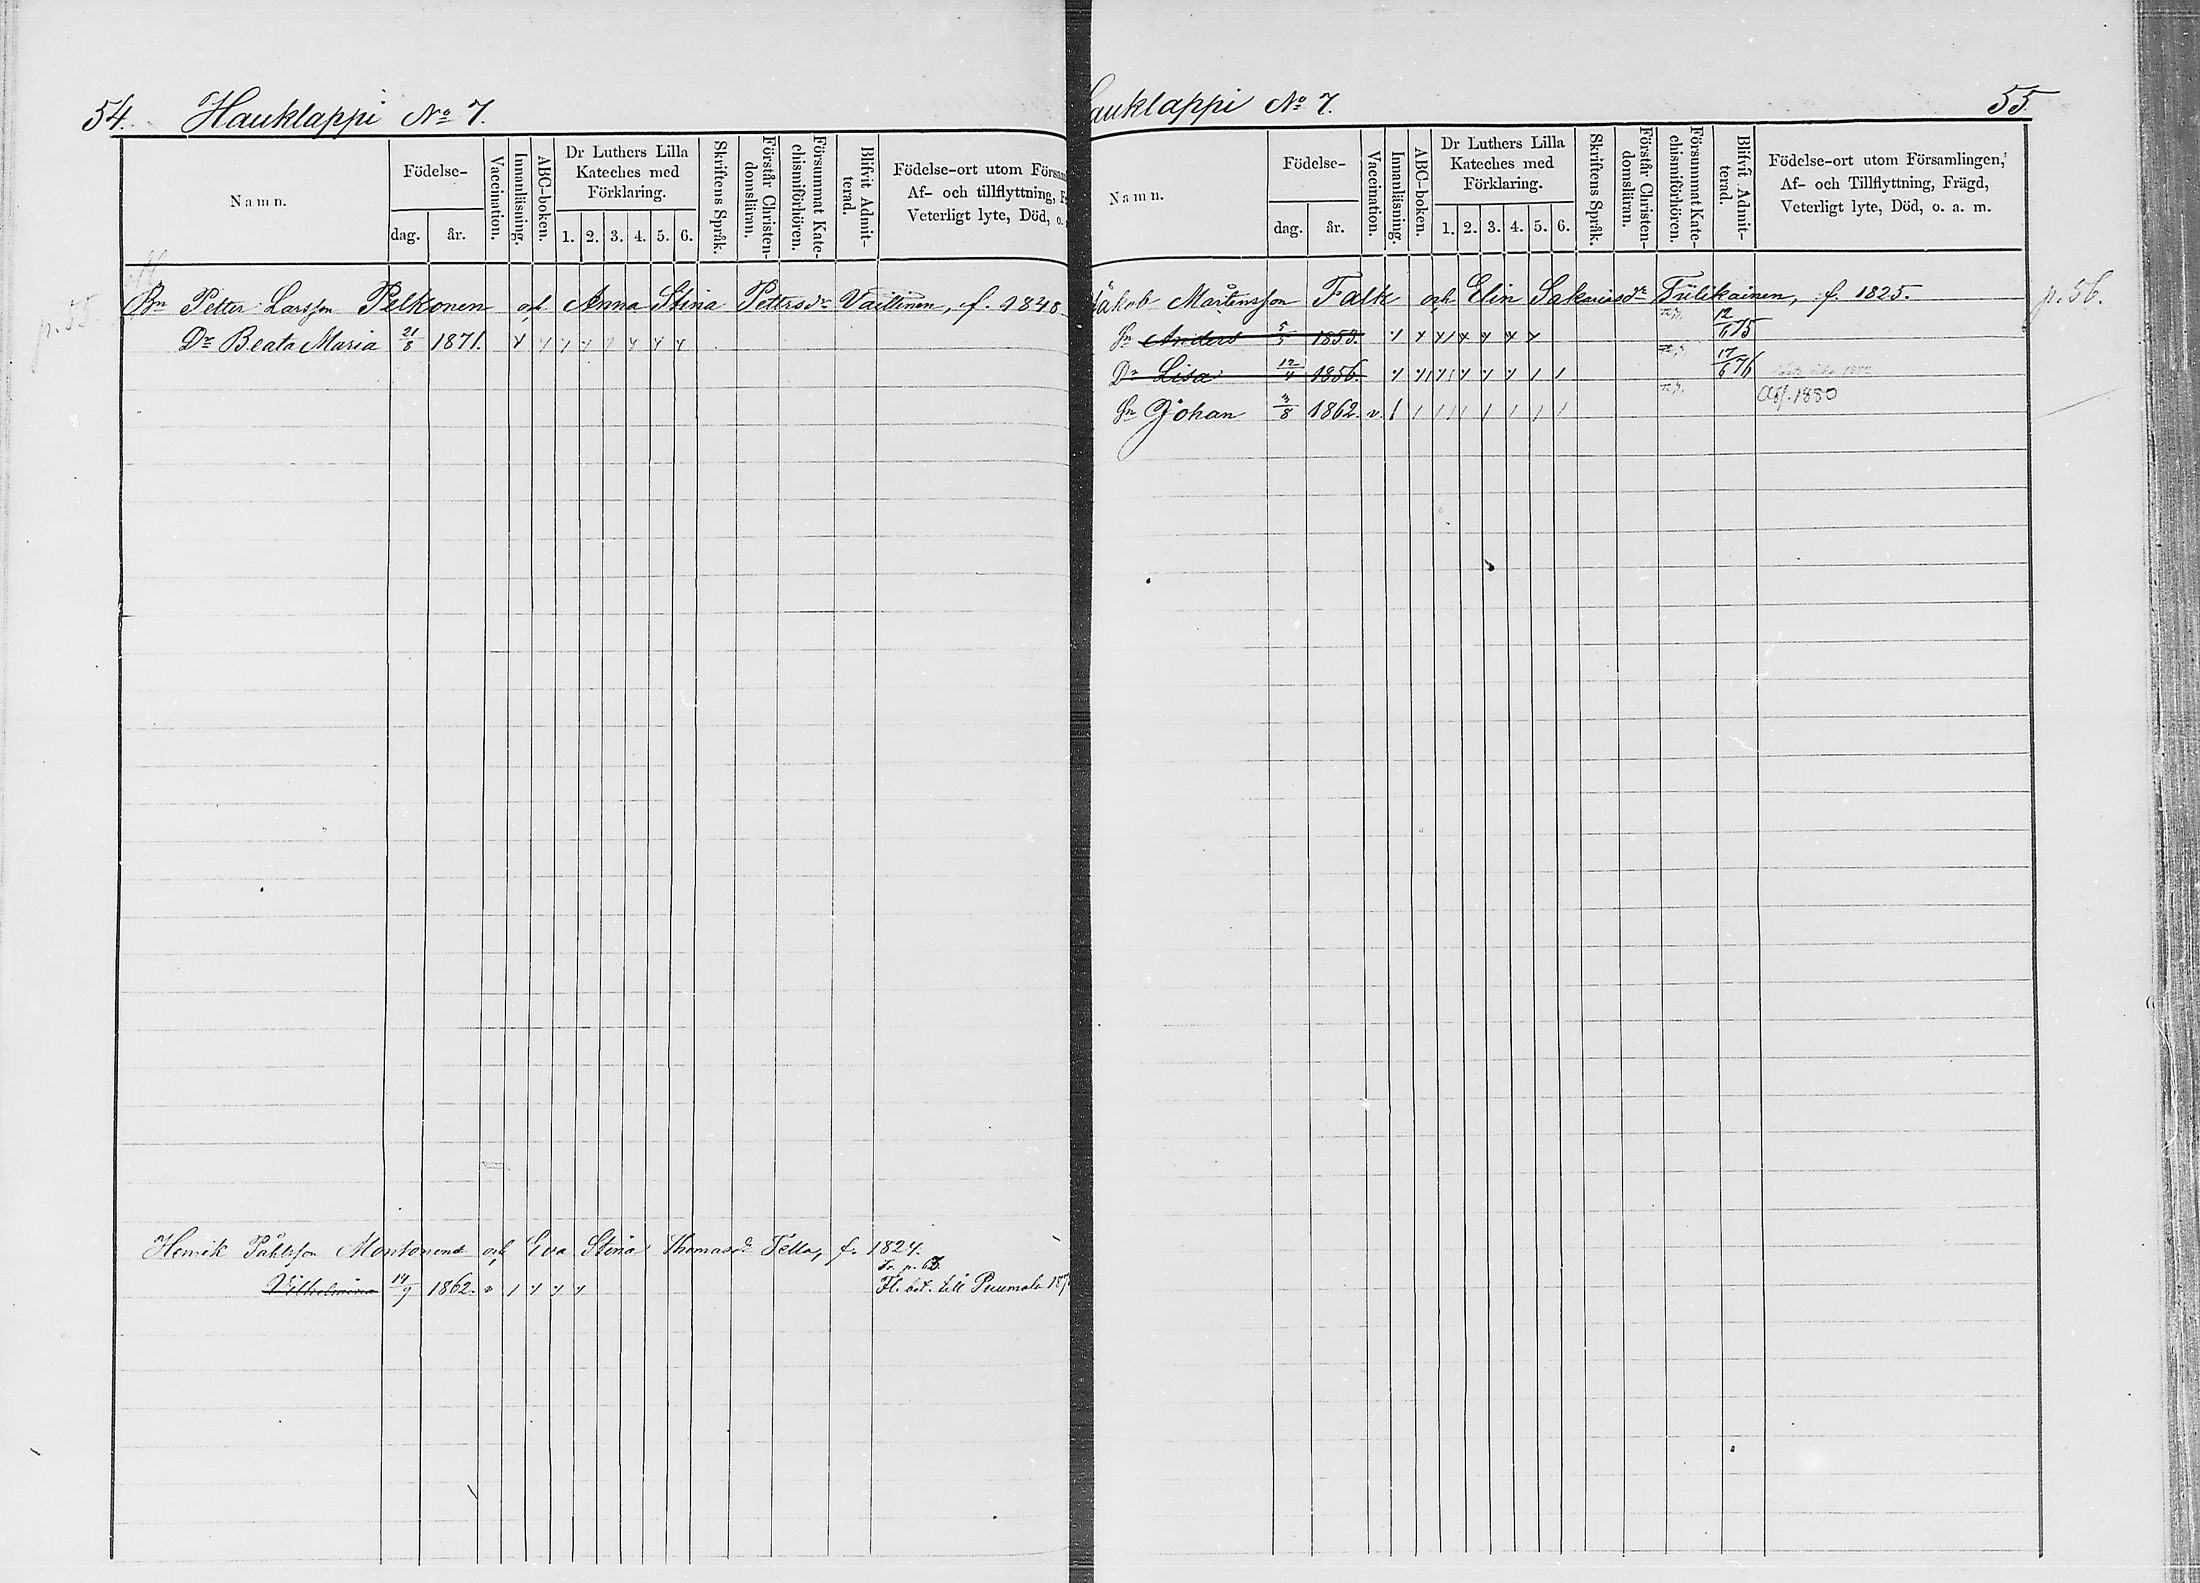 54. Hauklappi No 7.
Namn.
Födelse-
dag. år.
Vaccination.
Innanläsning.
ABC-boken.
Dr Luthers Lilla
Kateches med
Förklaring.
1. 2. 3. 4. 5. 6.
Skriftens Språk.
Förstår Christen-
domsläran.
Försummat Kate-
chismiförhören.
Blifvit Admit-
terad.
Födelse-ort utom Försam
Af- och tillflyttning,
Veterligt lyte, Död, o.
p. 55
Bn Petter Larsson Pelkonen och Anna Stina Pettersdr Vaittinen, f. 1848
Dr Beata Maria 21/8 1871.
Henrik Påhlsson Montonen och Eva Stina Thomasdr Tella, f. 1824.
Fr. p. 63.
Vilhelmina 14/9 1862. v Fl. bet. till Puumala 187
auklappi No 7. 55
Namn.
Födelse-
dag. år.
Vaccination.
Innanläsning.
ABC-boken.
Dr Luthers Lilla
Kateches med
Förklaring.
1. 2. 3. 4. 5. 6.
Skriftens Språk.
Förstår Christen-
domsläran.
Försummat Kate-
chismiförhören.
Blifvit Admit-
terad.
Födelse-ort utom Församlingen,
Af- och Tillflyttning, Frägd,
Veterligt lyte, Död, o. a. m.
Jakob Mårtensson Falk och Elin Sakariasdr Tülikainen, f. 1825. p. 56.
Sn Anders 5/5 1853. 12/6 75
Dr Lisa 12/4 1856. 17/6 76
Sn Johan 3/8 1862. v. Afl. 1880